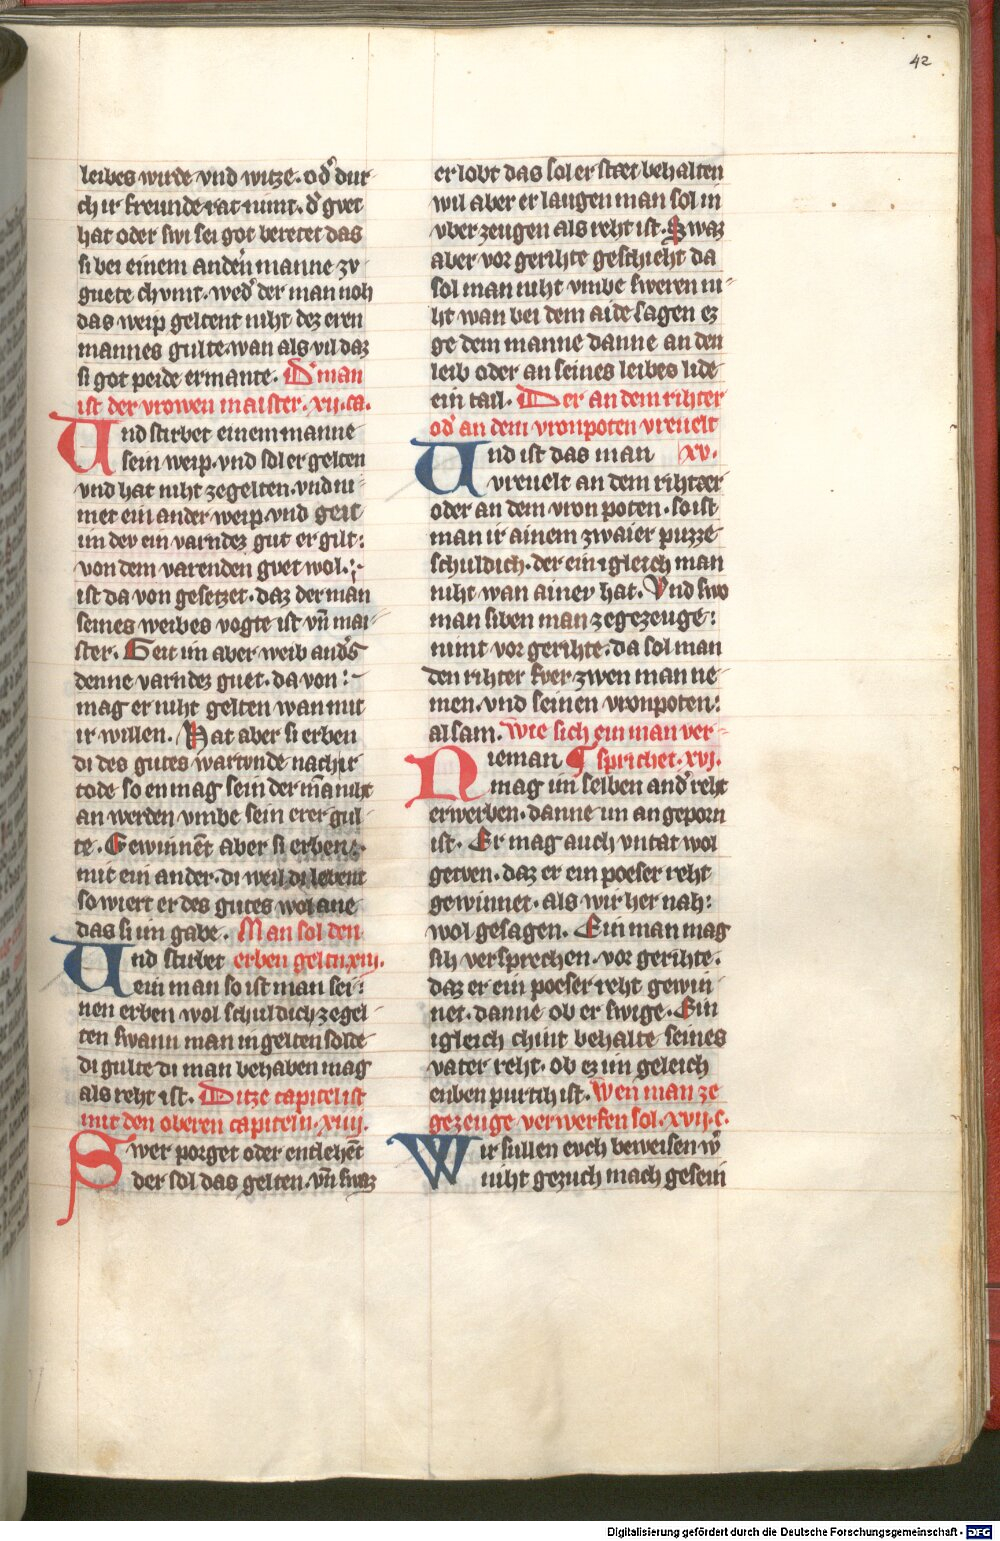 42
leibes wirde vnd witze. od͛ dur
ch ir freunde rat nimt. d͛ gvet
hat oder swi sei got beretet das
si bei einem anderͤn manne zv
guete chvmt. wed͛ der man noh
das weip geltent niht dez eren
mannes gulte. wan als vil daz
si got peide ermante. D͛ man
ist der vrowen maister. xij. ca.
Und stirbet einem manne
sein weip. vnd sol er gelten
vnd hat niht zegelten. vnd ni
met ein ander weip. vnd geit
im dev ein varndez gut er gilt:
von dem varenden gvet wol.
ist da von gesetzet. daz der man
seines weibes vogte ist vn̄ mai
ster. Geit im aber weib and͛s
denne varndez guet. da von
mag er niht gelten wan mit
ir willen. Hat aber si erben
di des gutes wartvnde nach ir
tode so en mag sein der mā niht
an werden vmbe sein erer gul
te. Gewinnēt aber si erben
mit ein ander. di weil di lebent
so wiert er des gutes wol ane
das si im gabe. Man sol den
Und stirbet erben gelten xiij.
ein man so ist man sei
nen erben wol schuldich zegel
ten swann man in gelten solde
di gulte di man behaben mag
als reht ist. Ditze capitel ist
mit den oberen capiteln. xiiij.
Swer porget oder entlehēt
der sol das gelten. vn̄ swaz
er lobt das sol er stæt behalten
wil aber er laugen man sol in
vber zeugen als reht ist. Swaz
aber vor gerihte geschieht da
sol man niht vmbe sweren ni
ht wan bei dem aide sagen ez
ge dem manne danne an den
leib oder an seines leibes lide
ein tail. Der an dem rihter
od͛ an dem vronpoten vreuelt
Und ist das man xv.
vreuelt an dem rihtær
oder an dem vron poten. so ist
man ir ainem zwaier puzze
schuldich. der ein igleich man
niht wan ainev hat. Vnd swo
man siben man ze gezeuge:
nimt vor gerihte. da sol man
den rihter fver zwen man ne
men. vnd seinen vronpoten:
alsam. Wie sich ein man ver
Nieman sprichet. xvj.
mag im selben and͛ reht
erwerben. danne im an geporn
ist. Er mag auch vntat wol
getven. daz er ein poeser reht
gewinnet. als wir her nah:
wol gesagen. Ein man mag
sih versprechen. vor gerihte.
daz er ein poeser reht gewin
net. danne ob er swige. Ein
igleich chint behalte seines
vater reht. ob ez im geleich
enben purtih ist. Wen man ze
gezeuge verwerfen sol. xvij. c.
Wir sullen evch beweisen w͛
niht gezuch mach gesein
Digitalisierung gefördert durch die Deutsche Forschungsgemeinschaft - DFG